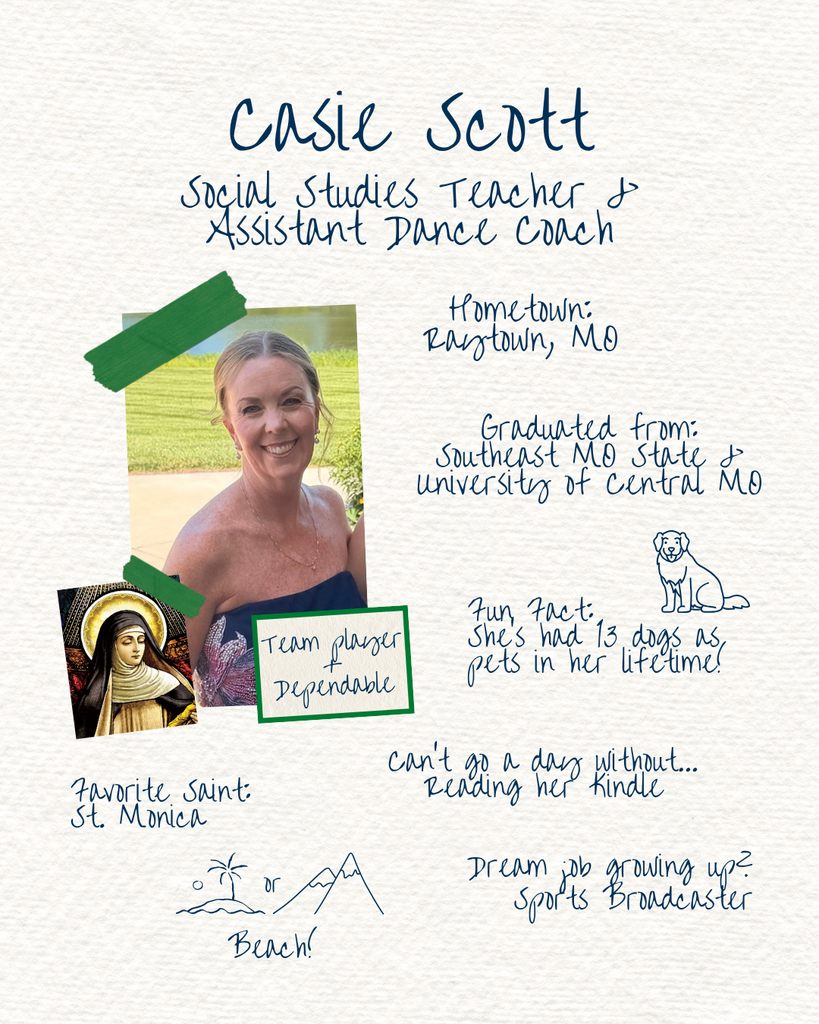 Casie Scott
Social Studies Teacher &
Assistant Dance Coach
Hometown:
Raytown, MO
Graduated from:
Southeast MO State &
University of Central MO
Fun Fact:
She's had 13 dogs as
pets in her lifetime!
Team player
+
Dependable
Can't go a day without...
Reading her Kindle
Favorite Saint:
St. Monica
or
Beach!
Dream job growing up?
Sports Broadcaster